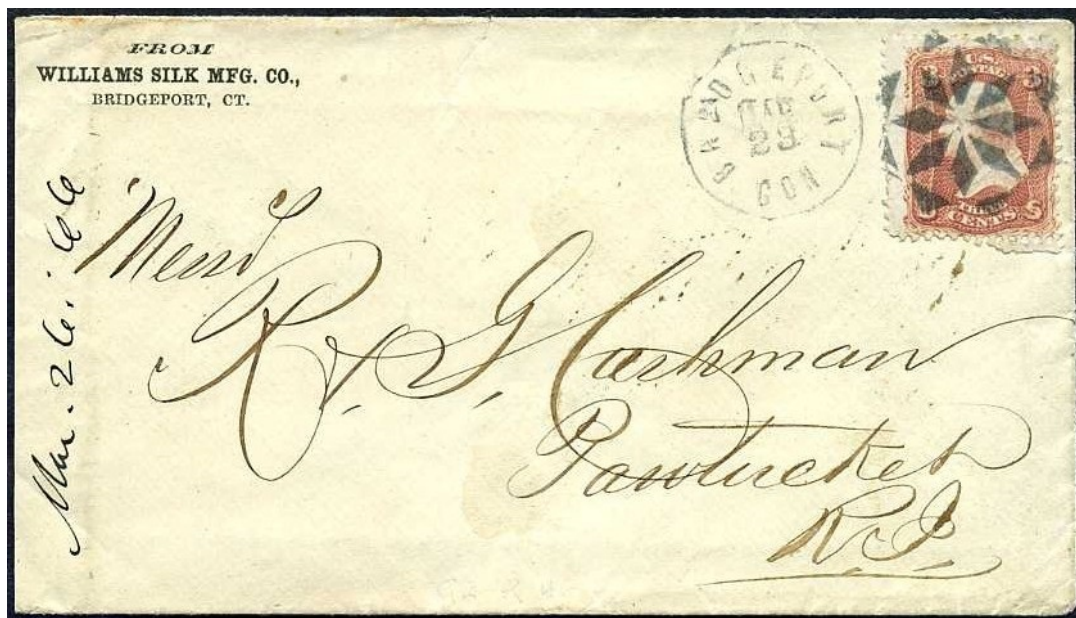 FROM
WILLIAMS SILK MFG. CO.,
BRIDGEPORT, CT.
BRIDGEPORT CON
MAR
23
U.S.
POSTAGE
3 3
CENTS
Mar. 26. 66
Messrs
R. & G. Cushman
Pawtucket
R.I.